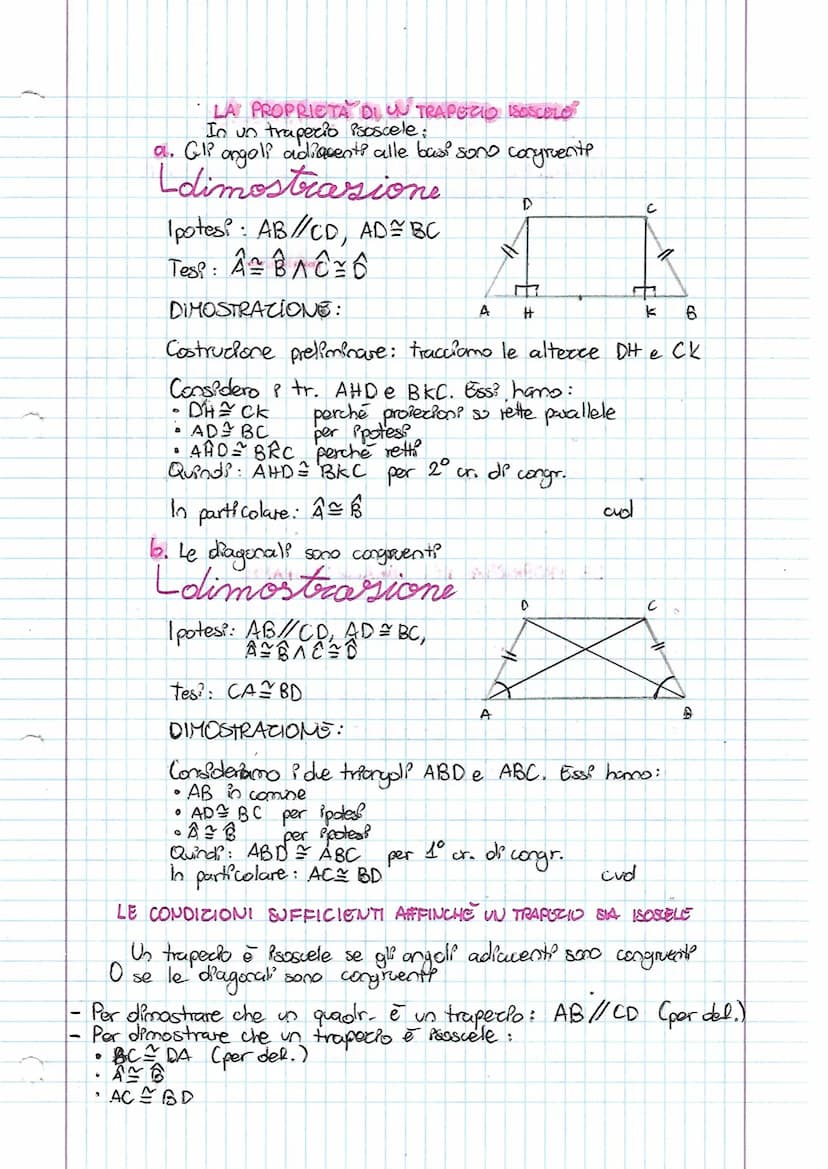 LA PROPRIETÀ DI UN TRAPEZIO ISOSCELO
In un trapezio isoscele:
a. Gli angoli adiacenti alle basi sono congruenti
dimostrazione
D C
Ipotesi: AB//CD, AD≅BC
Tesi: Â≅B̂ ∧ Ĉ≅D̂
DIMOSTRAZIONE:
A H K B
Costruzione preliminare: tracciamo le altezze DH e CK
Considero i tr. AHD e BKC. Essi hanno:
• DH≅CK perché proiezioni su rette parallele
• AD≅BC per ipotesi
• AĤD≅BK̂C perché retti
Quindi: AHD≅BKC per 2° cr. di congr.
In particolare: Â≅B̂ cvd
b. Le diagonali sono congruenti
dimostrazione
D C
Ipotesi: AB//CD, AD≅BC,
Â≅B̂ ∧ Ĉ≅D̂
Tesi: CA≅BD
A B
DIMOSTRAZIONE:
Consideriamo i due triangoli ABD e ABC. Essi hanno:
• AB in comune
• AD≅BC per ipotesi
• Â≅B̂ per ipotesi
Quindi: ABD≅ABC per 1° cr. di congr.
In particolare: AC≅BD cvd
LE CONDIZIONI SUFFICIENTI AFFINCHÉ UN TRAPEZIO SIA ISOSCELE
Un trapezio è isoscele se gli angoli adiacenti sono congruenti
O se le diagonali sono congruenti
- Per dimostrare che un quadr. è un trapezio: AB//CD (per def.)
- Per dimostrare che un trapezio è isoscele:
• BC≅DA (per def.)
• Â≅B̂
• AC≅BD